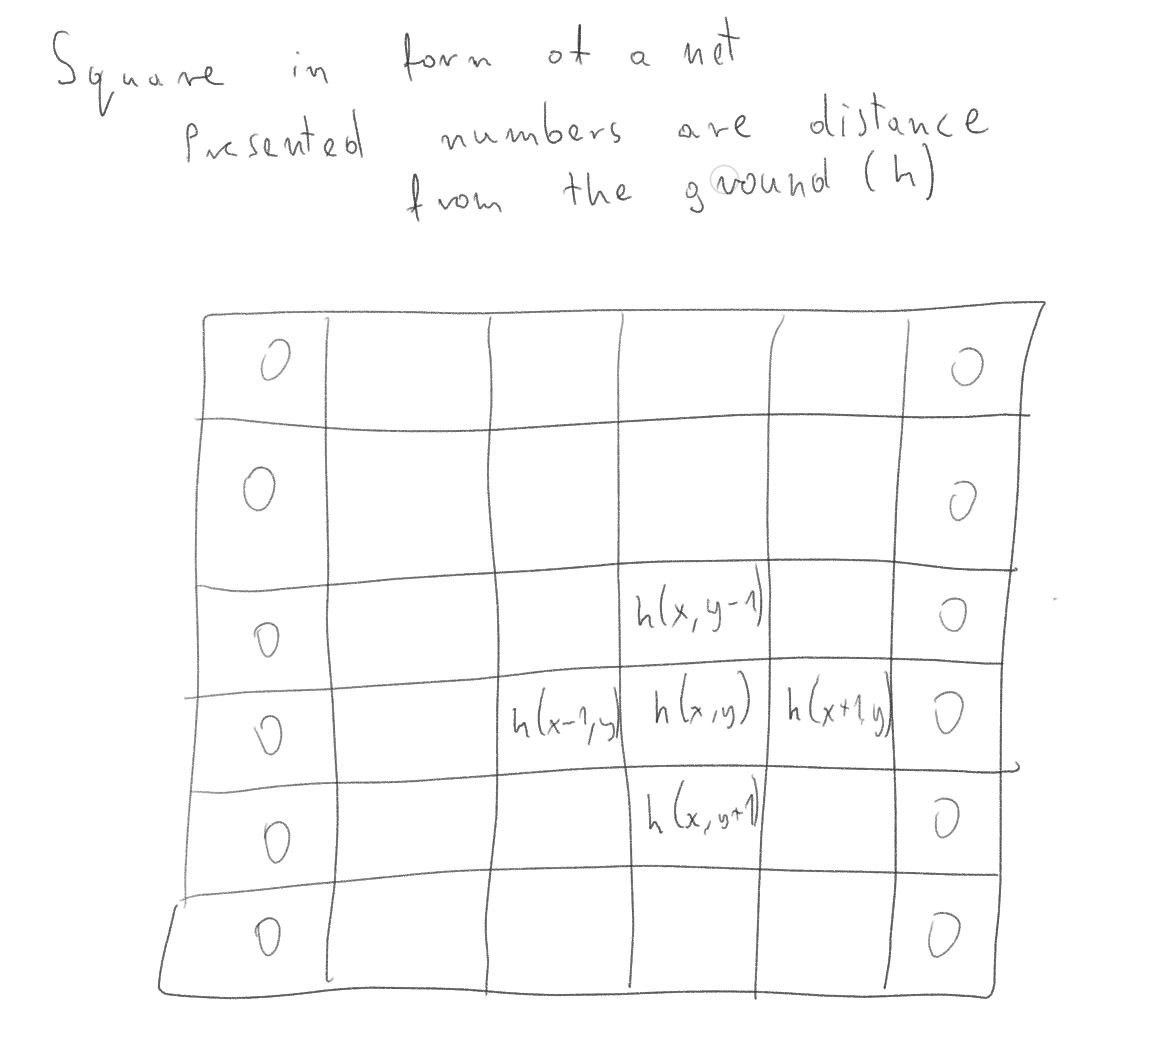 Square in form of a net
Presented numbers are distance
from the ground (h)
0 0
0 0
0 h(x, y-1) 0
0 h(x-1, y) h(x, y) h(x+1, y) 0
0 h(x, y+1) 0
0 0